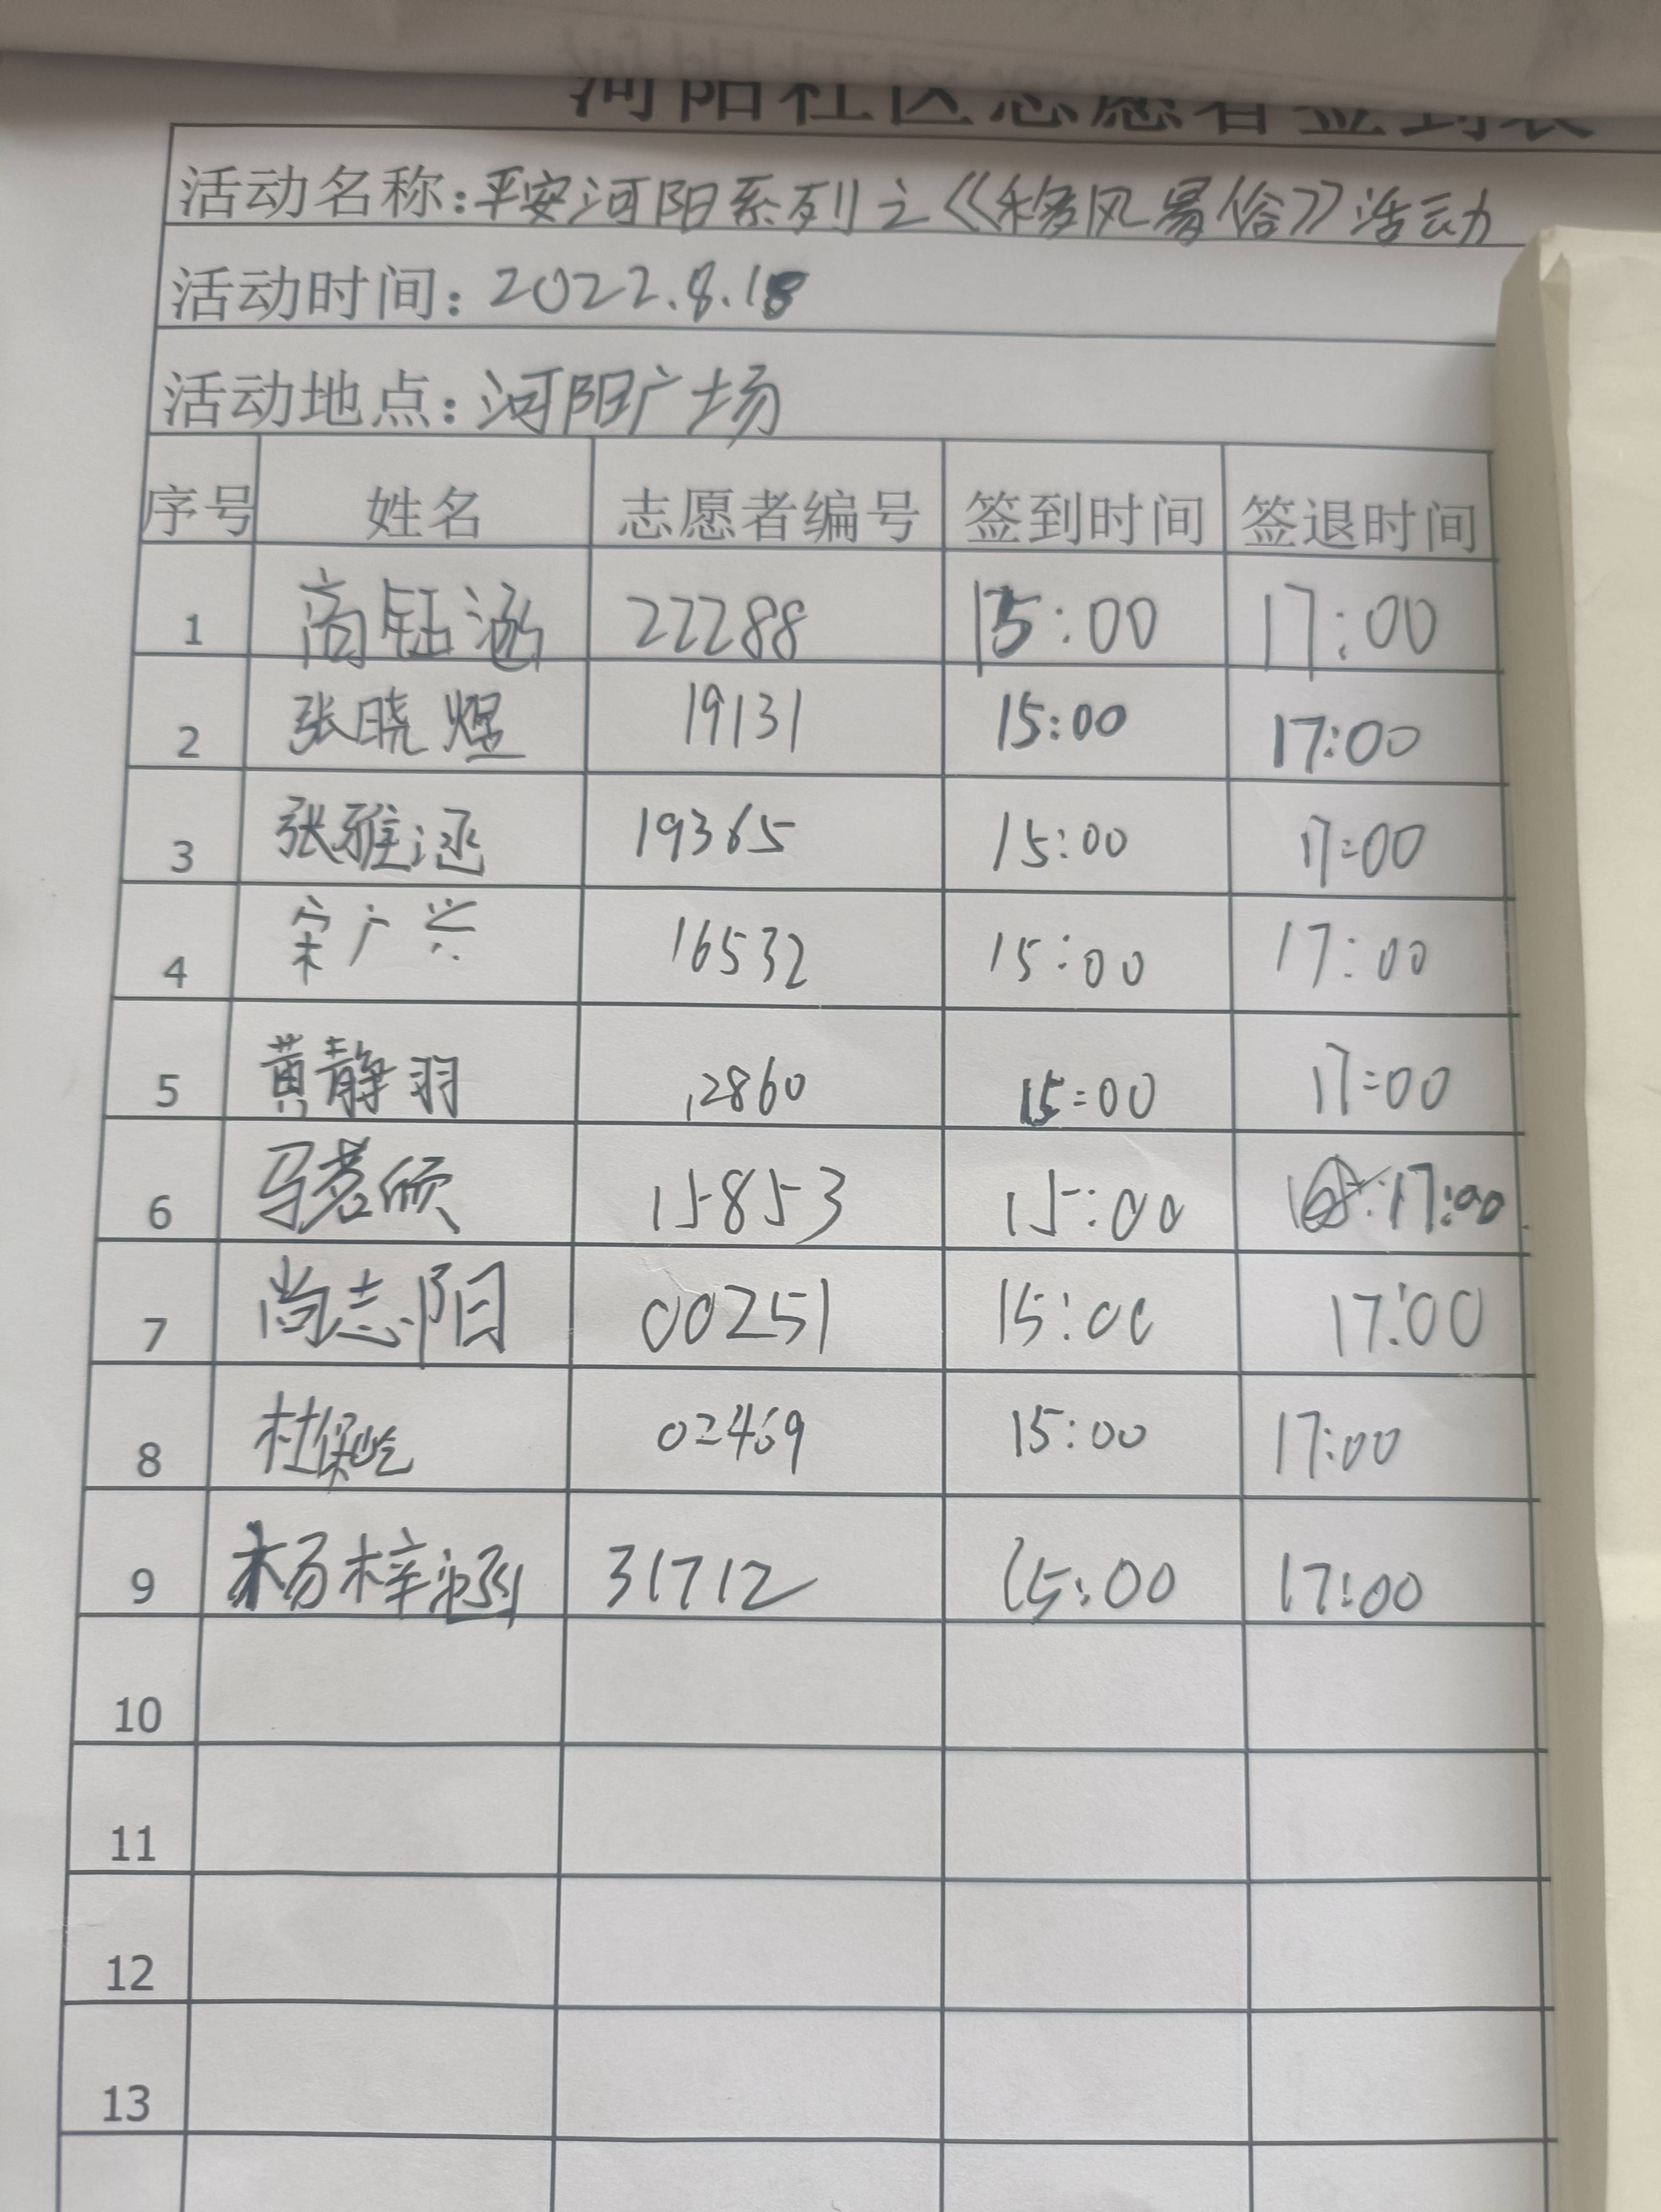 河阳社区志愿者签到表
活动名称:平安河阳系列之《移风易俗》活动
活动时间:2022.8.18
活动地点:河阳广场
序号 姓名 志愿者编号 签到时间 签退时间
1 高钰涵 22288 15:00 17:00
2 张晓煜 19131 15:00 17:00
3 张雅涵 19365 15:00 17:00
4 宋广兴 16532 15:00 17:00
5 黄静羽 12860 15:00 17:00
6 马茗硕 15853 15:00 17:00
7 尚志阳 00251 15:00 17:00
8 杜保屹 02469 15:00 17:00
9 杨梓涵 31712 15:00 17:00
10
11
12
13